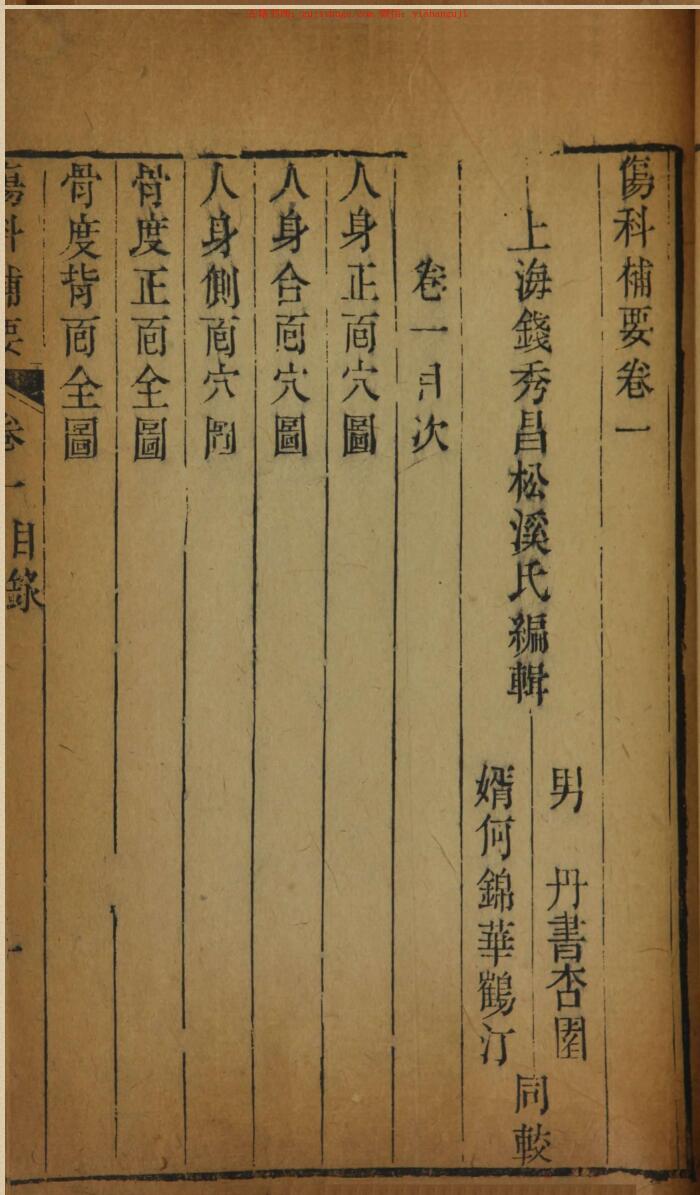 古籍书网：gujishuge.com 微信：yishanguji
傷科補要卷一
上海錢秀昌松溪氏編輯
男 丹書杏園
婿何錦華鶴汀
同較
卷一目次
人身正面穴圖
人身合面穴圖
人身側面穴圖
骨度正面全圖
骨度背面全圖
傷科補要 卷一 目錄 一